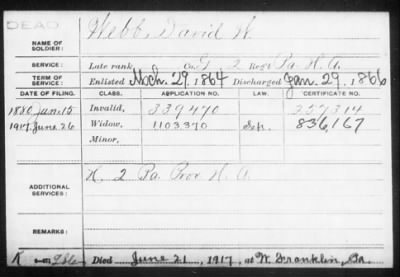 DEAD
Webb, David W.
NAME OF SOLDIER:
SERVICE: Late rank, Co. G, 2 Reg't Pa. H. A.
TERM OF SERVICE: Enlisted Mch. 29, 1864 Discharged Jan. 29, 1866
DATE OF FILING. CLASS. APPLICATION NO. LAW. CERTIFICATE NO.
1880 Jan. 15 Invalid, 339470 257314
1917 June 26 Widow, 1103370 836,167
Minor,
ADDITIONAL SERVICES: K. 2 Pa. Prov. H. A.
REMARKS:
Died June 21, 1917, at W. Franklin, Pa.